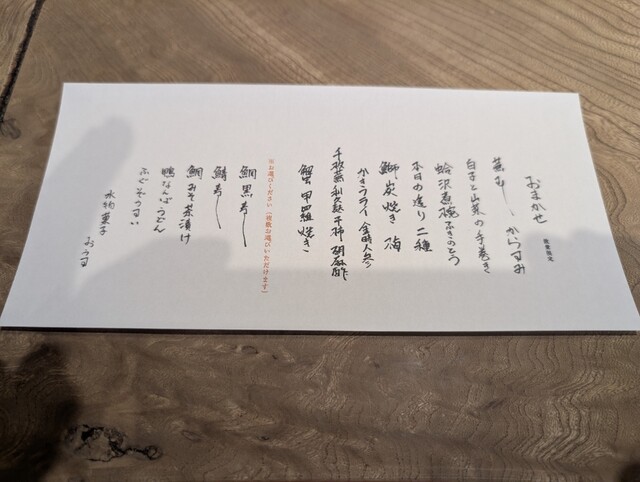 おまかせ
夜営限定
蕪むし からすみ
白子と山菜の手巻き
蛤沢煮椀 ふきのとう
本日の造り 二種
鰤炭焼き
かきフライ 金時人参
千枚蕪 利久麩 干柿 胡麻酢
蟹甲羅焼き
※お選びください(複数お選びいただけます)
鯛黒寿し
鯖寿し
鯛みそ茶漬け
鴨なんばうどん
ふぐぞうすい
水物 菓子
おうす